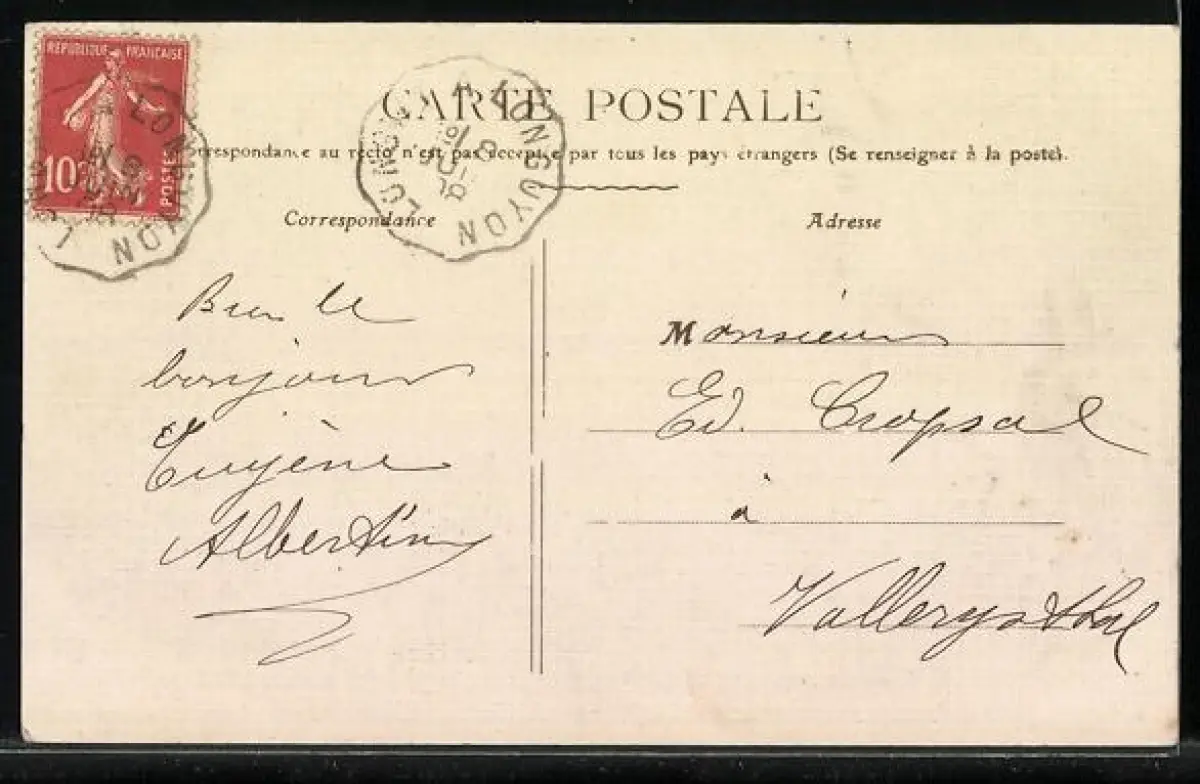 RÉPUBLIQUE FRANÇAISE
10c
POSTES
LONGUYON
LONGUYON
CARTE POSTALE
Correspondance au recto n'est pas acceptée par tous les pays étrangers (Se renseigner à la poste).
Correspondance
Adresse
Bien le
bonjour
Eugène
Albertin
Monsieur
Ed. Cropsal
à
Vallerysthal